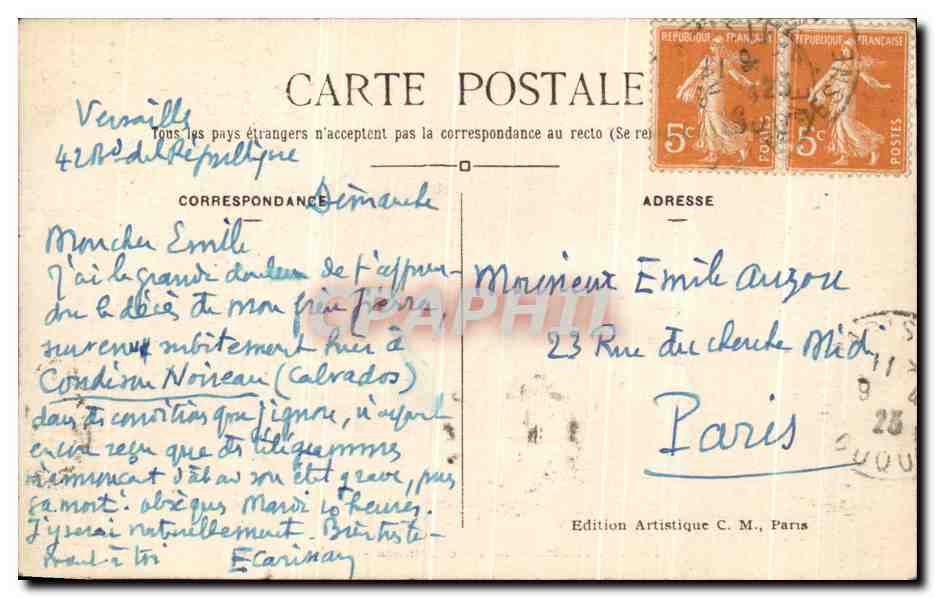 CARTE POSTALE
Tous les pays étrangers n'acceptent pas la correspondance au recto (Se re
CORRESPONDANCE
ADRESSE
Versaille
42 Bd de la République
Dimanche
Mon cher Emile
J'ai la grande douleur de t'appren-
dre le décès de mon frère Pierre,
survenu subitement hier à
Condé sur Noireau (Calvados)
dans des conditions que j'ignore, n'ayant
encore reçu que des télégrammes
m'annonçant d'abord son état grave, puis
sa mort. obsèques Mardi 10 heures.
J'y serai naturellement. Bien triste-
ment à toi
Monsieur Emile Auzou
23 Rue du cherche Midi
Paris
Edition Artistique C. M., Paris
REPUBLIQUE FRANÇAISE
5c
POSTES
REPUBLIQUE FRANÇAISE
5c
POSTES
CPAPHIL